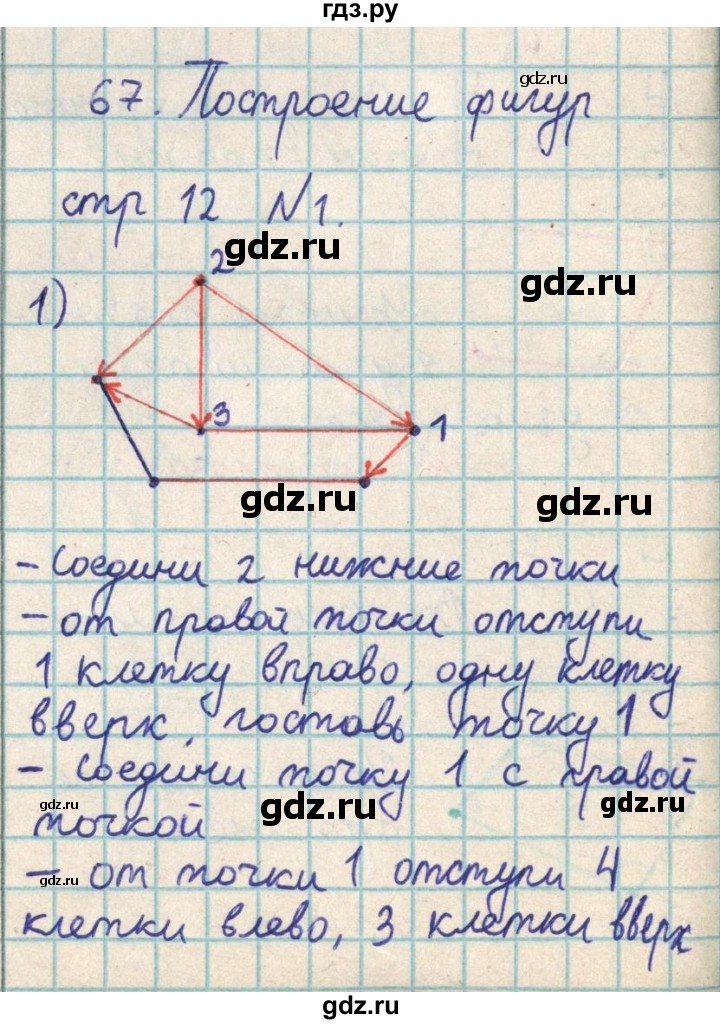 гдз.ру
gdz.ru
67. Построение фигур
стр 12 №1.
gdz.ru
gdz.ru
1)
2
3
1
gdz.ru
gdz.ru
- Соедини 2 нижние точки
- от правой точки отступи
1 клетку вправо, одну клетку
вверх, поставь точку 1
- Соедини точку 1 с правой
gdz.ru
gdz.ru
gdz.ru
точкой
- от точки 1 отступи 4
gdz.ru
клетки влево, 3 клетки вверх
gdz.ru